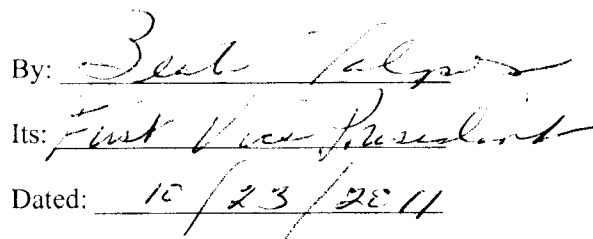 By:
Its: First Vice President
Dated: 10/23/2011